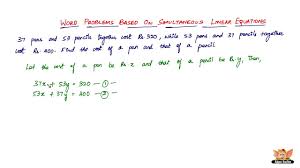 WORD PROBLEMS BASED ON SIMULTANEOUS LINEAR EQUATIONS
37 pens and 53 pencils together cost Rs. 320, while 53 pens and 37 pencils together
cost Rs. 400. Find the cost of a pen and that of a pencil.
Let the cost of a pen be Rs. x and that of a pencil be Rs. y. Then,
37x + 53y = 320 — ①
53x + 37y = 400 — ②